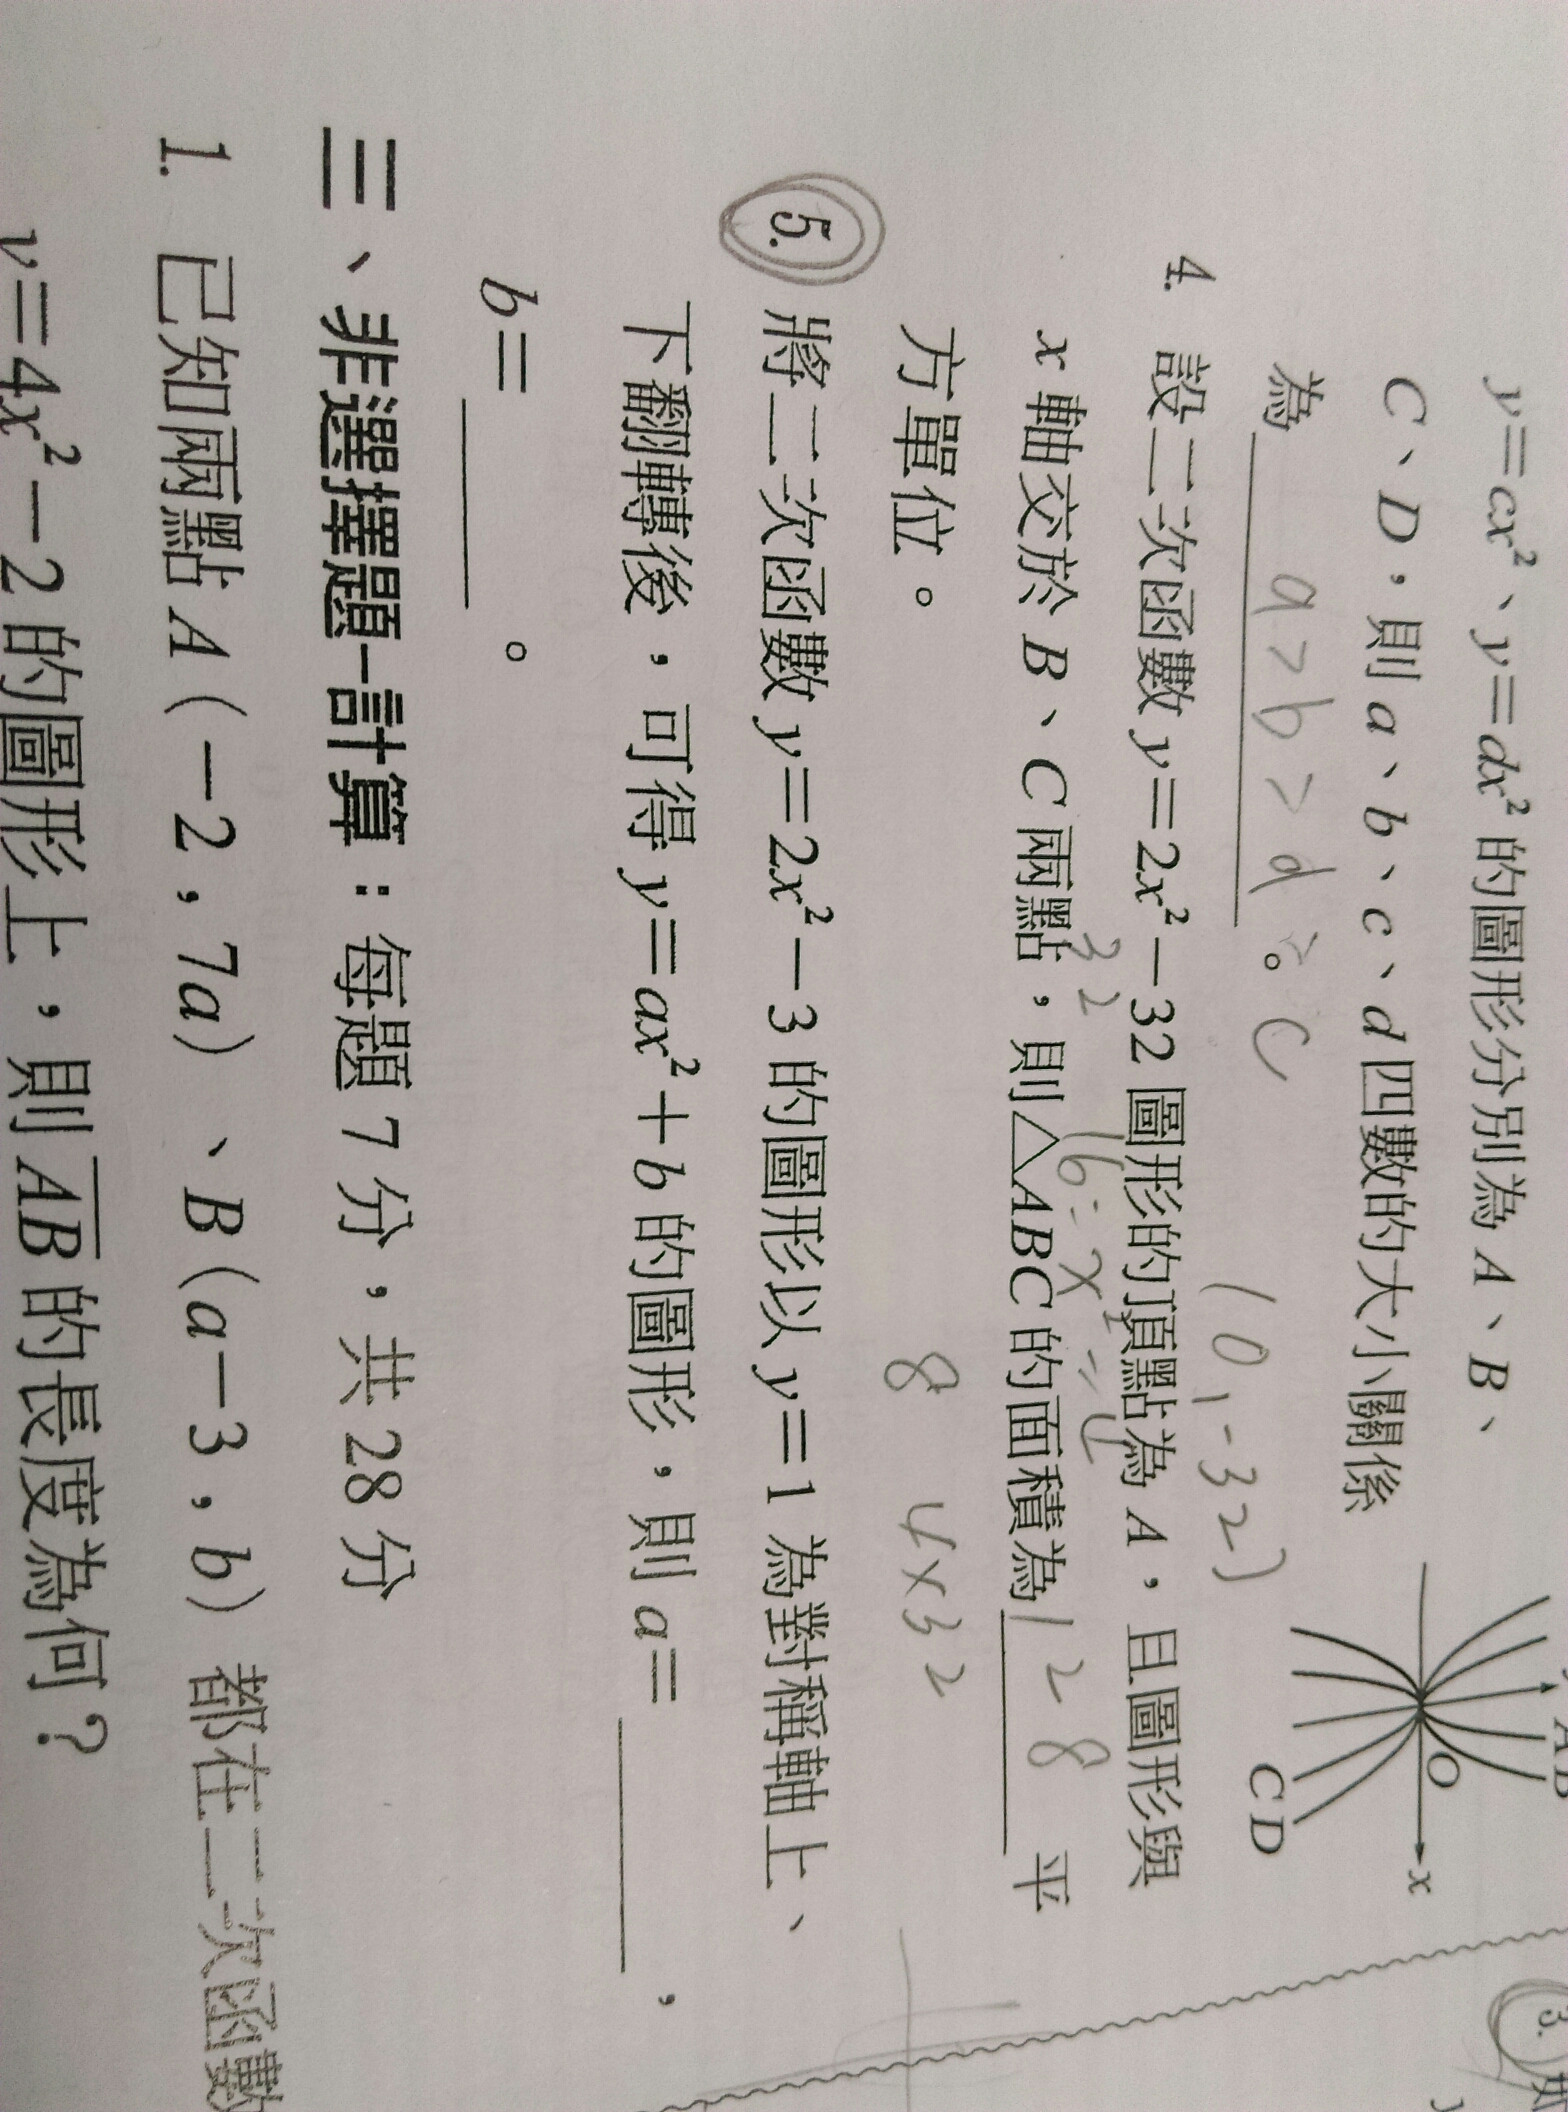 y=cx²、y=dx² 的圖形分別為 A、B、
C、D，則 a、b、c、d 四數的大小關係
為 a>b>d>c 。
A B
O
x
C D
4. 設二次函數 y=2x²−32 圖形的頂點為 A，且圖形與
(0,-32)
x 軸交於 B、C 兩點，則△ABC 的面積為 128 平
32
方單位。
8 4×32
5. 將二次函數 y=2x²−3 的圖形以 y=1 為對稱軸上、
下翻轉後，可得 y=ax²+b 的圖形，則 a= ，
b= 。
三、非選擇題-計算：每題 7 分，共 28 分
1. 已知兩點 A（−2，7a）、B（a−3，b）都在二次函數
y=4x²−2 的圖形上，則 AB 的長度為何？
3.